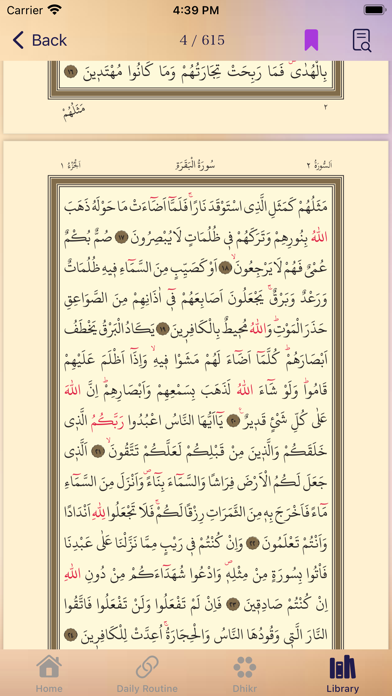 Carrier 4:39 PM
Back 4 / 615
بِالْهُدٰىۖ فَمَا رَبِحَتْ تِجَارَتُهُمْ وَمَا كَانُوا مُهْتَد۪ينَ ﴿١٦﴾
٢ مَثَلُهُمْ
اَلسُّورَةُ ٢ سُورَةُ الْبَقَرَةِ اَلْجُزْءُ ١
مَثَلُهُمْ كَمَثَلِ الَّذِي اسْتَوْقَدَ نَارًاۚ فَلَمَّٓا اَضَٓاءَتْ مَا حَوْلَهُ ذَهَبَ
اللّٰهُ بِنُورِهِمْ وَتَرَكَهُمْ ف۪ي ظُلُمَاتٍ لَا يُبْصِرُونَ ﴿١٧﴾ صُمٌّ بُكْمٌ
عُمْيٌ فَهُمْ لَا يَرْجِعُونَۙ ﴿١٨﴾ اَوْ كَصَيِّبٍ مِنَ السَّمَٓاءِ ف۪يهِ ظُلُمَاتٌ
وَرَعْدٌ وَبَرْقٌۚ يَجْعَلُونَ اَصَابِعَهُمْ ف۪ٓي اٰذَانِهِمْ مِنَ الصَّوَاعِقِ
حَذَرَ الْمَوْتِۜ وَاللّٰهُ مُح۪يطٌ بِالْكَافِر۪ينَ ﴿١٩﴾ يَكَادُ الْبَرْقُ يَخْطَفُ
اَبْصَارَهُمْۜ كُلَّمَٓا اَضَٓاءَ لَهُمْ مَشَوْا ف۪يهِۙ وَاِذَٓا اَظْلَمَ عَلَيْهِمْ
قَامُواۜ وَلَوْ شَٓاءَ اللّٰهُ لَذَهَبَ بِسَمْعِهِمْ وَاَبْصَارِهِمْۜ اِنَّ اللّٰهَ
عَلٰى كُلِّ شَيْءٍ قَد۪يرٌ۟ ﴿٢٠﴾ يَٓا اَيُّهَا النَّاسُ اعْبُدُوا رَبَّكُمُ الَّذ۪ي
خَلَقَكُمْ وَالَّذ۪ينَ مِنْ قَبْلِكُمْ لَعَلَّكُمْ تَتَّقُونَۙ ﴿٢١﴾ اَلَّذ۪ي
جَعَلَ لَكُمُ الْاَرْضَ فِرَاشًا وَالسَّمَٓاءَ بِنَٓاءًۖ وَاَنْزَلَ مِنَ السَّمَٓاءِ
مَٓاءً فَاَخْرَجَ بِه۪ مِنَ الثَّمَرَاتِ رِزْقًا لَكُمْۚ فَلَا تَجْعَلُوا لِلّٰهِ اَنْدَادًا
وَاَنْتُمْ تَعْلَمُونَ ﴿٢٢﴾ وَاِنْ كُنْتُمْ ف۪ي رَيْبٍ مِمَّا نَزَّلْنَا عَلٰى عَبْدِنَا
فَأْتُوا بِسُورَةٍ مِنْ مِثْلِه۪ۖ وَادْعُوا شُهَدَٓاءَكُمْ مِنْ دُونِ اللّٰهِ
اِنْ كُنْتُمْ صَادِق۪ينَ ﴿٢٣﴾ فَاِنْ لَمْ تَفْعَلُوا وَلَنْ تَفْعَلُوا فَاتَّقُوا
النَّارَ الَّت۪ي وَقُودُهَا النَّاسُ وَالْحِجَارَةُۚ اُعِدَّتْ لِلْكَافِر۪ينَ ﴿٢٤﴾
Home Daily Routine Dhikr Library